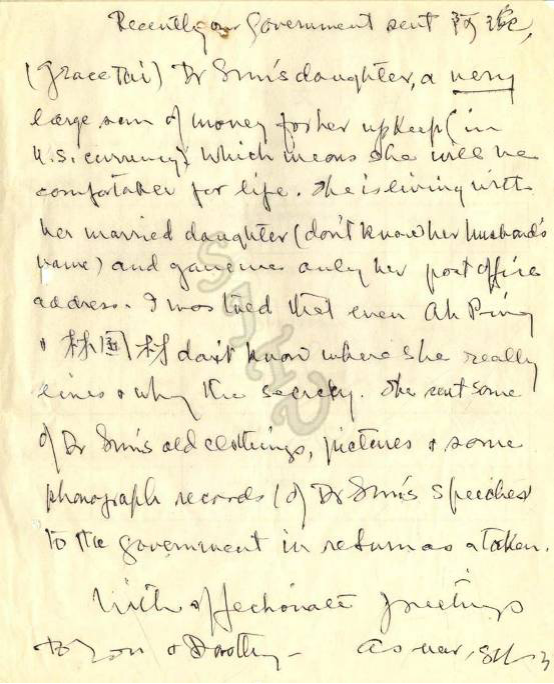 Recently our Government sent 阿琬,
(Grace Tai) Dr Sun's daughter, a very
large sum of money for her upkeep (in
U.S. currency) which means she will be
comfortable for life. She is living with
her married daughter (don't know her husband's
name) and gave me only her post office
address. I was told that even Ah Ping
& 林国材 don't know where she really
lives & why the secrecy. She sent some
of Dr Sun's old clothings, pictures & some
phonograph records (of Dr Sun's speeches
to the government in return as a token.
With affectionate greetings
to you & Dorothy - As ever,